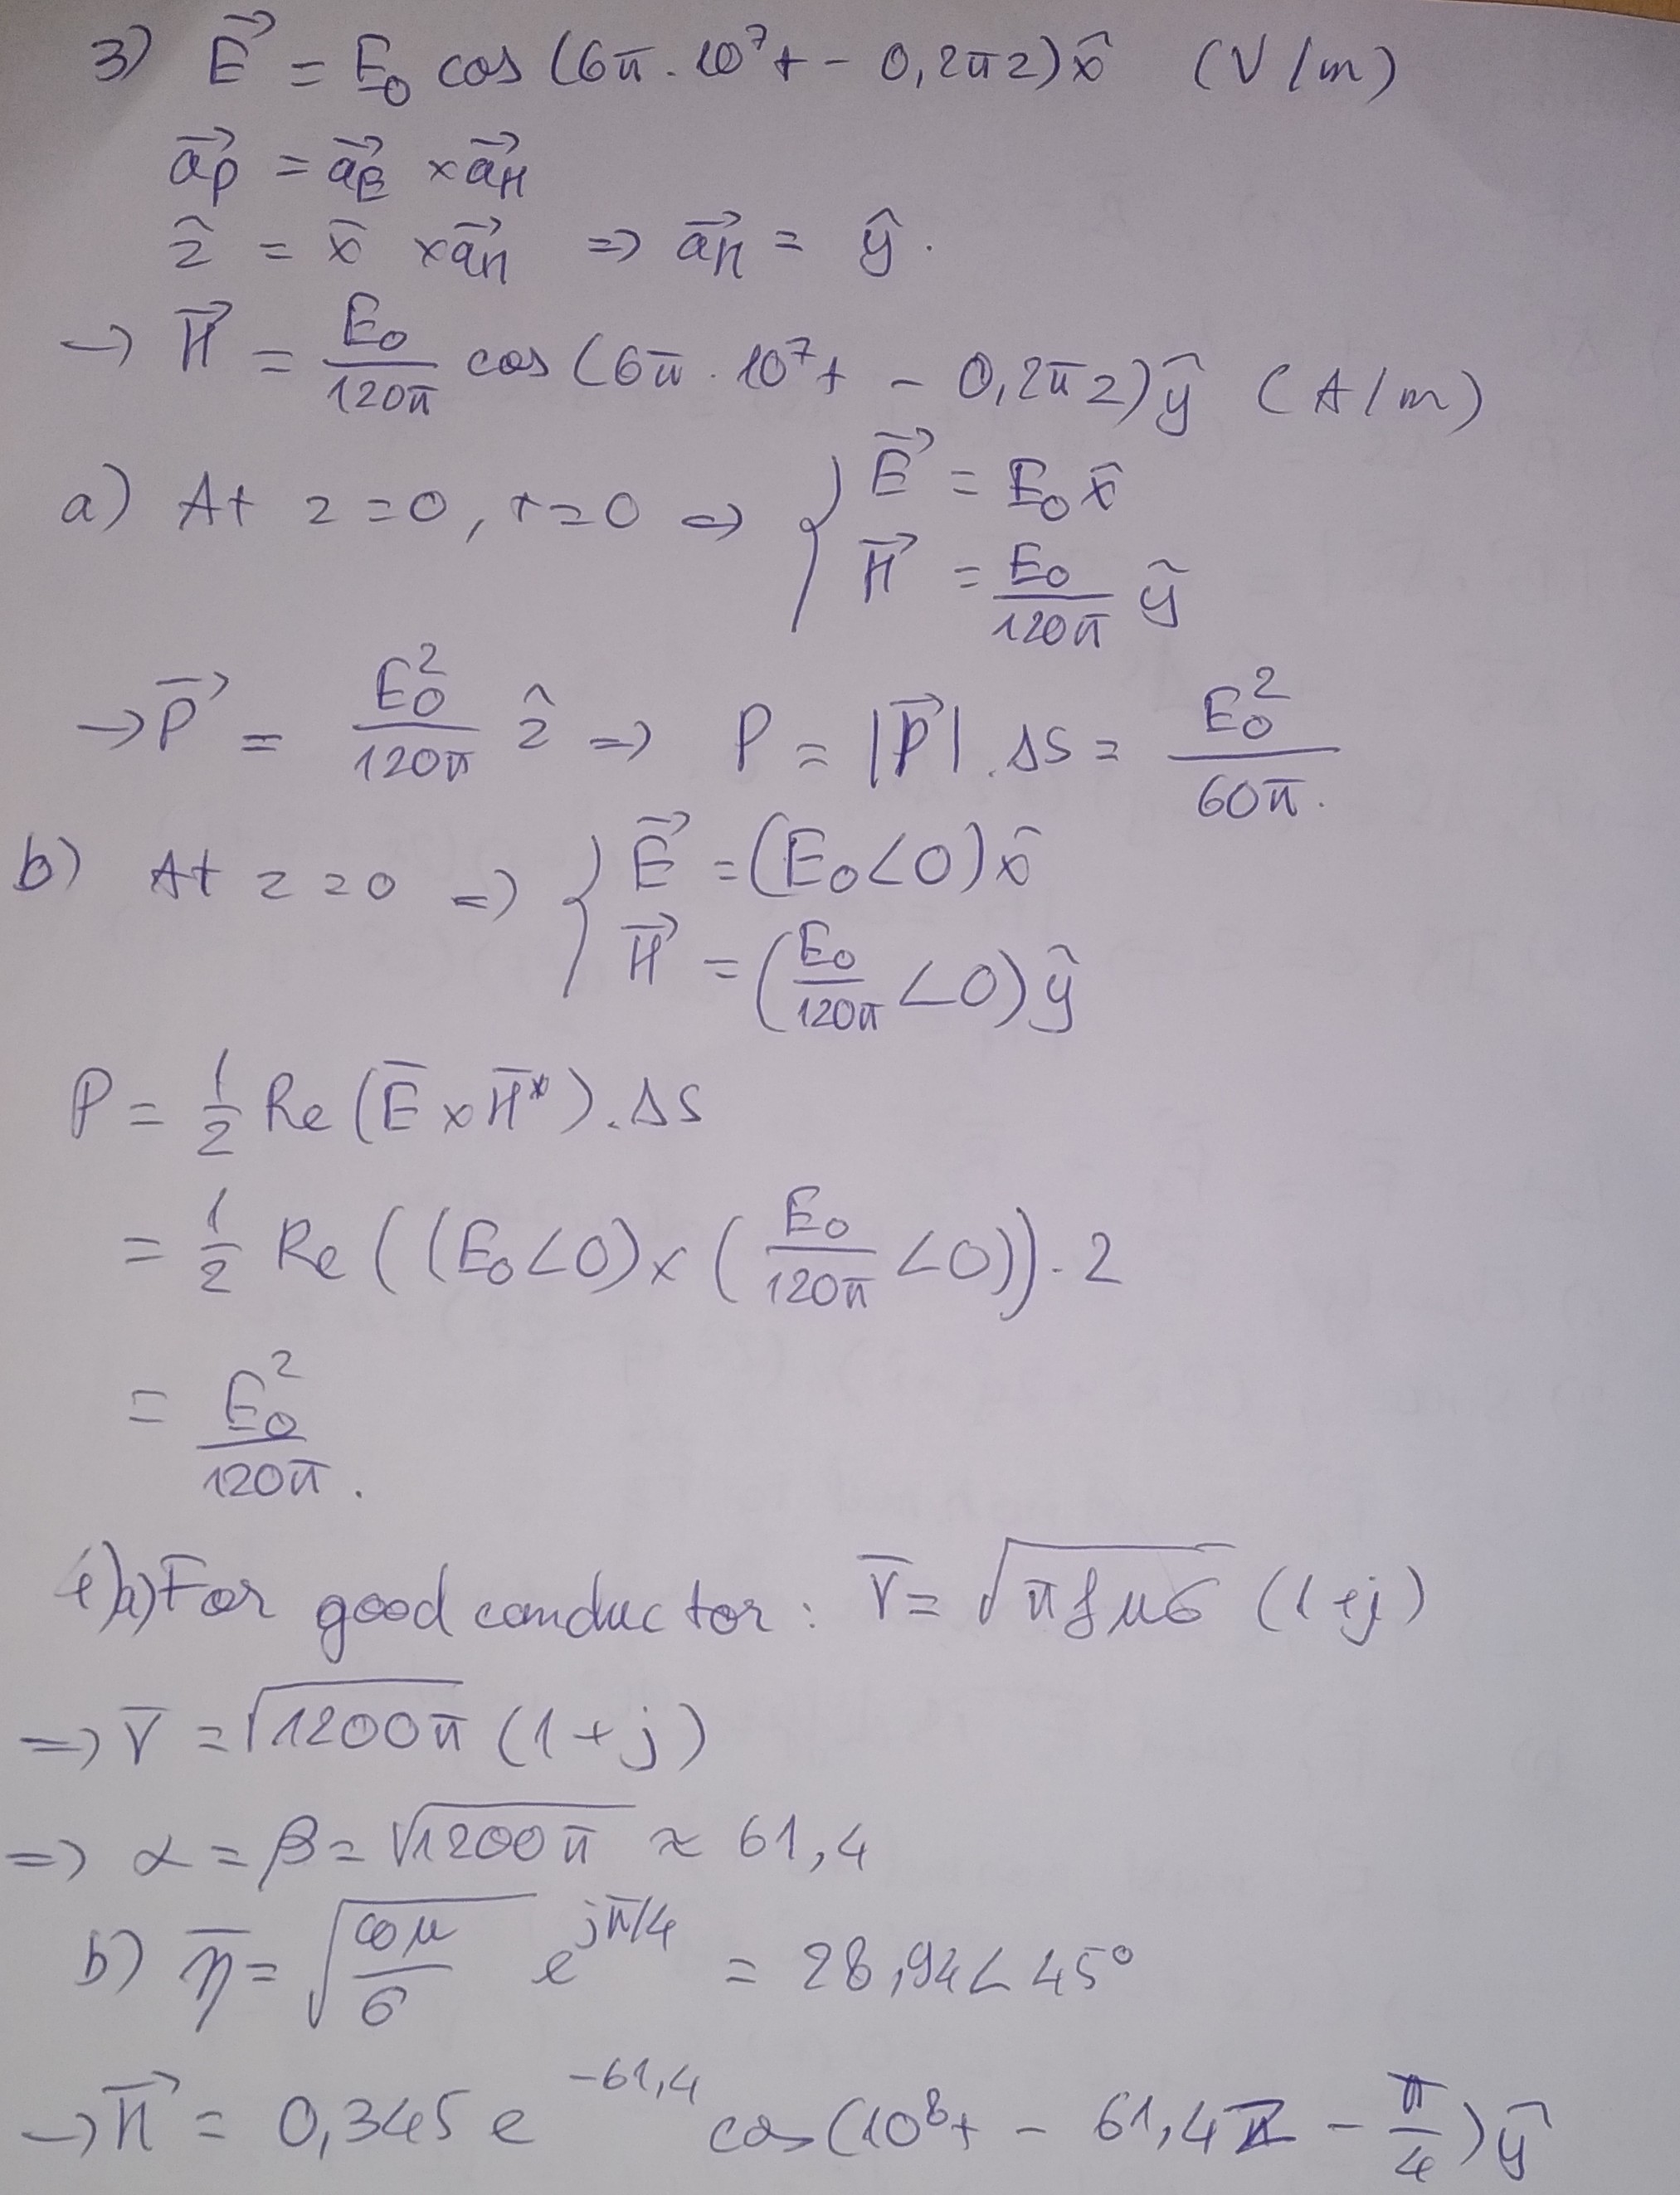 3) E⃗ = E₀ cos (6π . 10⁷t - 0,2πz) x̂ (V/m)
a⃗p = a⃗E × a⃗H
ẑ = x̂ × a⃗H => a⃗H = ŷ .
→ H⃗ = E₀/120π cos (6π . 10⁷t - 0,2πz) ŷ (A/m)
a) At z = 0, t = 0 => { E⃗ = E₀ x̂
H⃗ = E₀/120π ŷ
→ P⃗ = E₀²/120π ẑ => P = |P⃗| . ΔS = E₀²/60π .
b) At z = 0 => { E⃗ = (E₀∠0) x̂
H⃗ = (E₀/120π ∠0) ŷ
P = 1/2 Re (E̅ × H̅*) . ΔS
= 1/2 Re ((E₀∠0) × (E₀/120π ∠0)) . 2
= E₀²/120π .
4)a) For good conductor : γ̅ = √(πfμσ) (1+j)
=> γ̅ = √(1200π) (1+j)
=> α = β = √(1200π) ≈ 61,4
b) η̅ = √(ωμ/σ) e^(jπ/4) = 28,94∠45°
→ H⃗ = 0,345 e^(-61,4) cos (10⁸t - 61,4z - π/4) ŷ